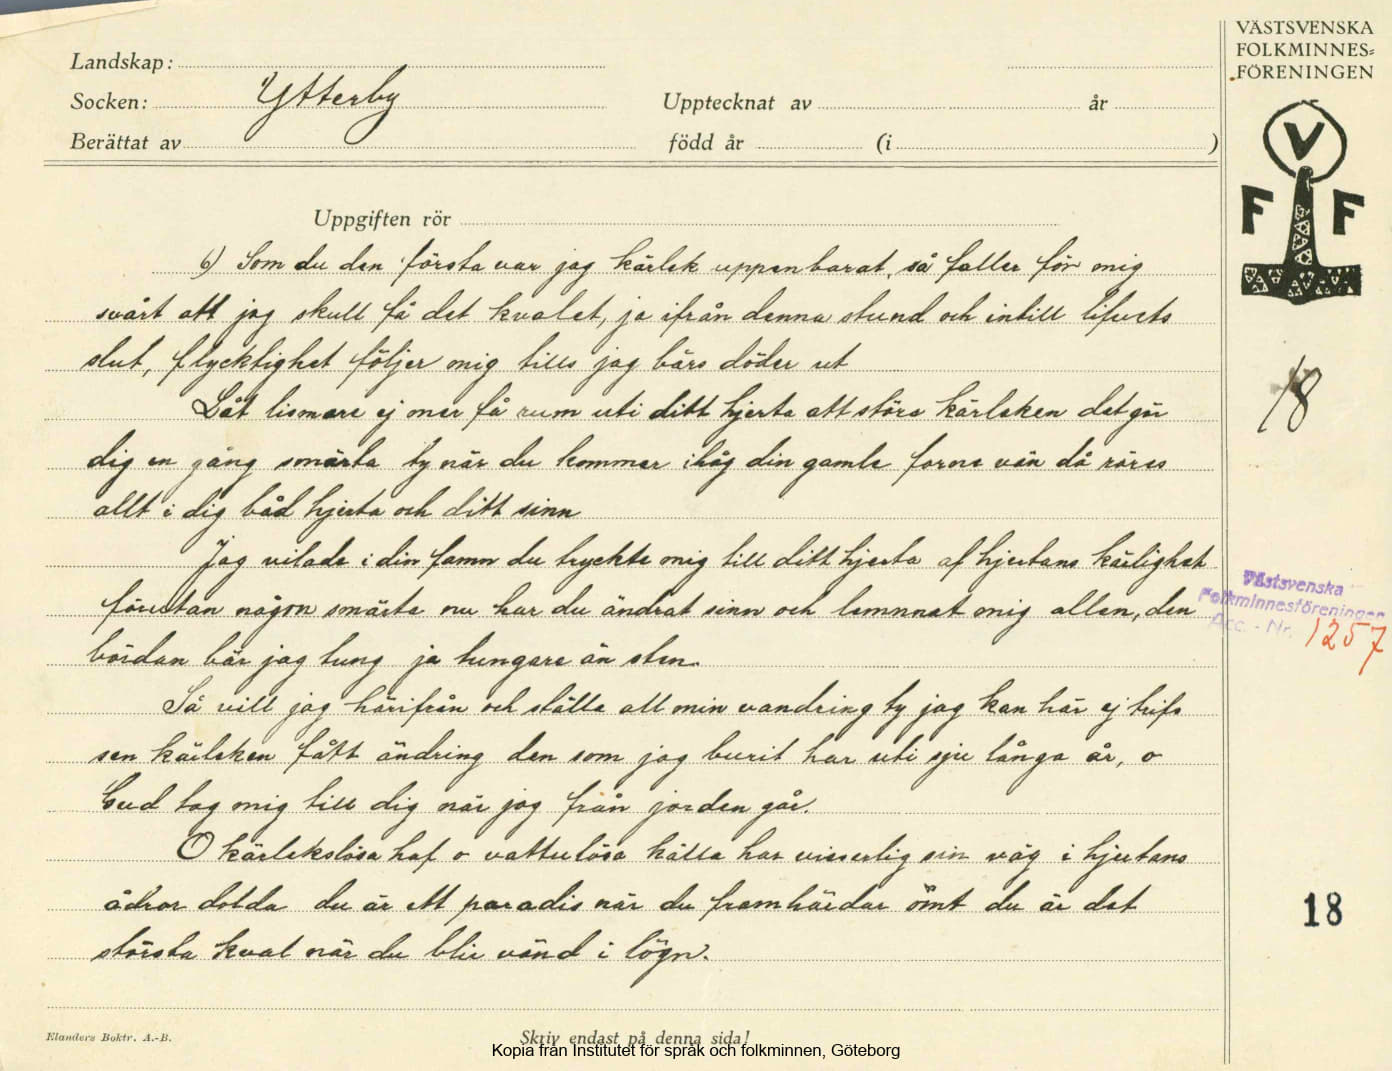 VÄSTSVENSKA
FOLKMINNES=
FÖRENINGEN
Landskap:
Socken: Ytterby
Upptecknat av år
Berättat av född år (i )
V
F F
Uppgiften rör
6) Som du den första var jag kärlek uppenbarat, så faller för mig
svårt att jag skull få det kvalet, ja ifrån denna stund och intill lifvets
slut, flycktighet följer mig tills jag bärs döder ut
18
Låt lismare ej mer få rum uti ditt hjerta att störa kärleken det gör
dig en gång smärta ty när du kommer ihåg din gamle forne vän då röres
allt i dig båd hjerta och ditt sinn
Jag vilade i din famn du tryckte mig till ditt hjerta af hjertans kärlighet
förutan någon smärta nu har du ändrat sinn och lemnnat mig allen, den
bördan bär jag tung ja tungare än sten.
Västsvenska
Folkminnesföreningen
Acc. - Nr. 1257
Så vill jag härifrån och ställa all min vandring ty jag kan här ej trifs
sen kärleken fått ändring den som jag burit har uti sju långa år, o
Gud tag mig till dig när jag från jorden går.
O kärlekslösa haf o vattulösa källa har visserlig sin väg i hjertans
ådror dolda du är ett paradis när du framhärdar ömt du är det
största kval när du blir vänd i lögn.
18
Elanders Boktr. A.-B.
Skriv endast på denna sida!
Kopia från Institutet för språk och folkminnen, Göteborg